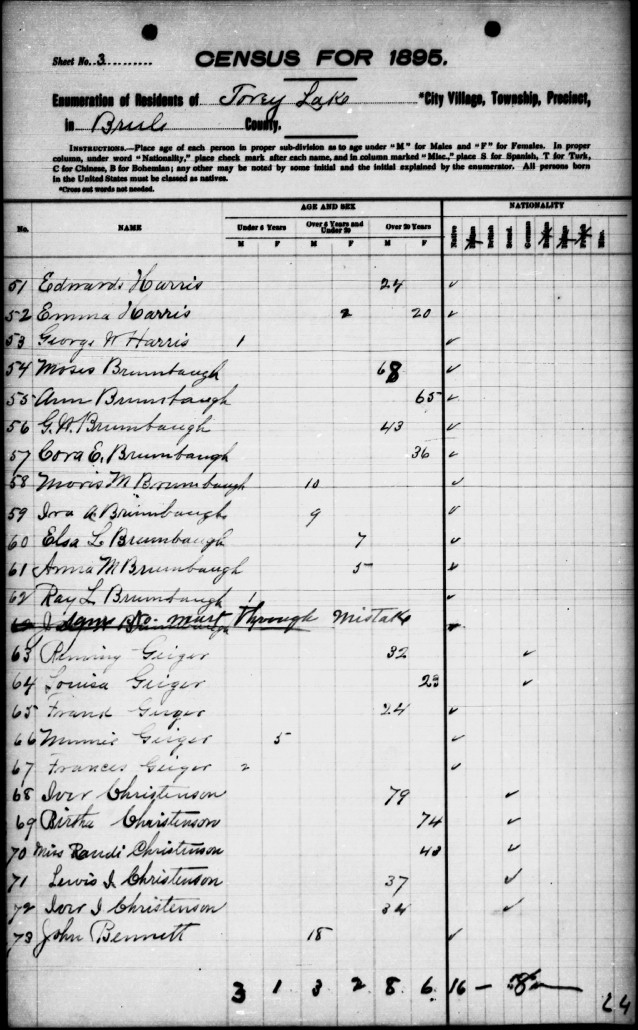 Sheet No. 3
CENSUS FOR 1895.
Enumeration of Residents of Torey Lake *City Village, Township, Precinct,
in Brule County.
INSTRUCTIONS.—Place age of each person in proper sub-division as to age under "M" for Males and "F" for Females. In proper
column, under word "Nationality," place check mark after each name, and in column marked "Misc.," place S for Spanish, T for Turk,
C for Chinese, B for Bohemian; any other may be noted by some initial and the initial explained by the enumerator. All persons born
in the United States must be classed as natives.
*Cross out words not needed.
AGE AND SEX NATIONALITY
No. NAME Under 5 Years Over 5 Years and Under 20 Over 20 Years Native British Scand. German Misc.
M F M F M F
51 Edwards Harris 24 ✓
52 Emma Harris 2 20 ✓
53 George W Harris 1 ✓
54 Moses Brumbaugh 68 ✓
55 Ann Brumbaugh 65 ✓
56 G. W. Brumbaugh 43 ✓
57 Cora E. Brumbaugh 36 ✓
58 Moris M Brumbaugh 10 ✓
59 Ira A Brumbaugh 9 ✓
60 Elsa L Brumbaugh 7 ✓
61 Anna M Brumbaugh 5 ✓
62 Ray L Brumbaugh 1 ✓
through Mistake
63 Geiger 32 ✓
64 Louisa Geiger 23 ✓
65 Frank Geiger 24 ✓
66 Minnie Geiger 5 ✓
67 Frances Geiger 2 ✓
68 Iver Christenson 79 ✓
69 Birtha Christenson 74 ✓
70 Miss Randi Christenson 43 ✓
71 Lewis I Christenson 37 ✓
72 Iver I Christenson 34 ✓
73 John Bennett 18 ✓
3 1 3 2 8 6 16 — 8